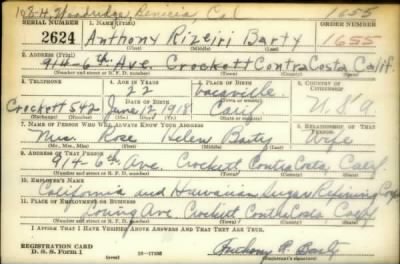 Benicia, Cal 1655
SERIAL NUMBER 1. NAME (Print)
2624 Anthony Rizeiri Barty 655
(First) (Middle) (Last)
2. ADDRESS (Print)
914-6th Ave. Crockett Contra Costa Calif.
(Number and street or R. F. D. number) (Town) (County) (State)
3. TELEPHONE 4. AGE IN YEARS 5. PLACE OF BIRTH 6. COUNTRY OF CITIZENSHIP
22 Vacaville
DATE OF BIRTH (Town or county)
Crockett 542 June 12 1918 Calif U S A
(Exchange) (Number) (Mo.) (Day) (Yr.) (State or country)
7. NAME OF PERSON WHO WILL ALWAYS KNOW YOUR ADDRESS 8. RELATIONSHIP OF THAT PERSON
Mrs. Rose Helen Barty Wife
(Mr., Mrs., Miss) (First) (Middle) (Last)
9. ADDRESS OF THAT PERSON
914 6th Ave. Crockett Contra Costa Calif
(Number and street or R. F. D. number) (Town) (County) (State)
10. EMPLOYER'S NAME
California and Hawaiian Sugar Refining Corp
11. PLACE OF EMPLOYMENT OR BUSINESS
Loring Ave. Crockett Contra Costa Calif
(Number and street or R. F. D. number) (Town) (County) (State)
I AFFIRM THAT I HAVE VERIFIED ABOVE ANSWERS AND THAT THEY ARE TRUE.
REGISTRATION CARD
D. S. S. Form 1 16-17105 Anthony R. Barty
(Registrant's signature)